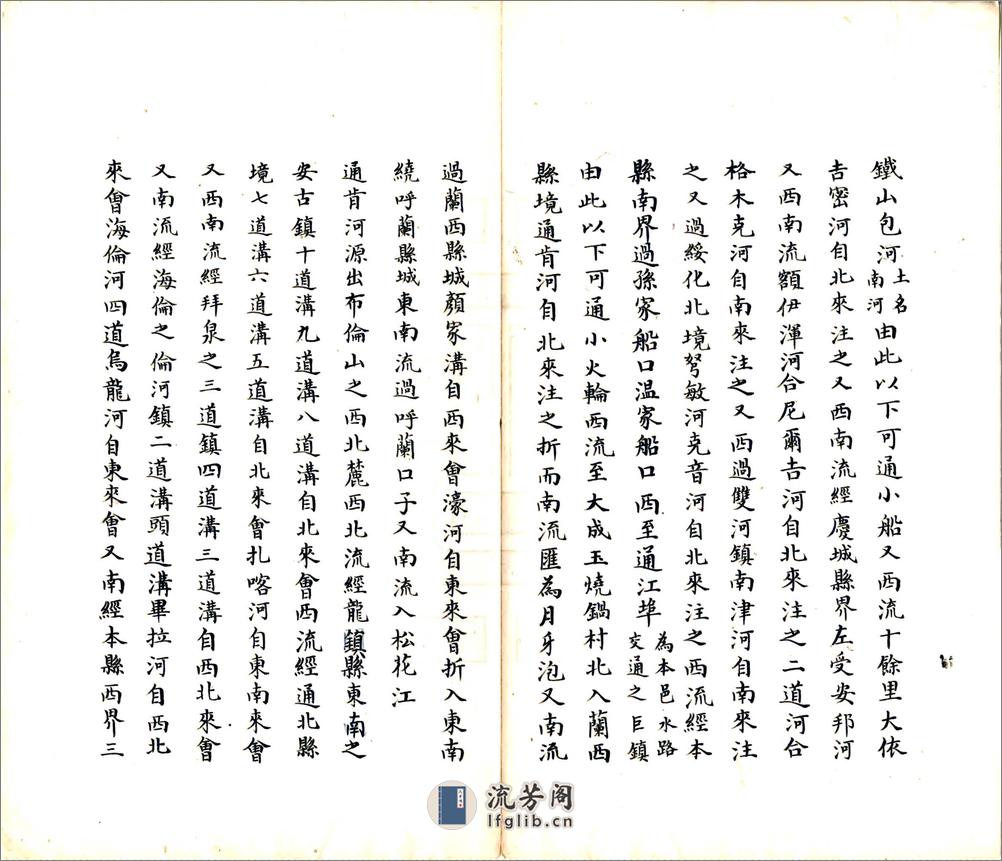 鐵山包河土名南河由此以下可通小船又西流十餘里大依
吉密河自北來注之又西南流經慶城縣界左受安邦河
又西南流額伊渾河合尼爾吉河自北來注之二道河合
格木克河自南來注之又西過雙河鎮南津河自南來注
之又過綏化北境弩敏河克音河自北來注之西流經本
縣南界過孫家船口溫家船口西至通江埠為本邑水路交通之巨鎮
由此以下可通小火輪西流至大成玉燒鍋村北入蘭西
縣境通肯河自北來注之折而南流匯為月牙泡又南流
過蘭西縣城顏家溝自西來會濠河自東來會折入東南
繞呼蘭縣城東南流過呼蘭口子又南流入松花江
通肯河源出布倫山之西北麓西北流經龍鎮縣東南之
安古鎮十道溝九道溝八道溝自北來會西流經通北縣
境七道溝六道溝五道溝自北來會扎喀河自東南來會
又西南流經拜泉之三道鎮四道溝三道溝自西北來會
又南流經海倫之倫河鎮二道溝頭道溝畢拉河自西北
來會海倫河四道烏龍河自東來會又南經本縣西界三
流芳阁
lfglib.cn